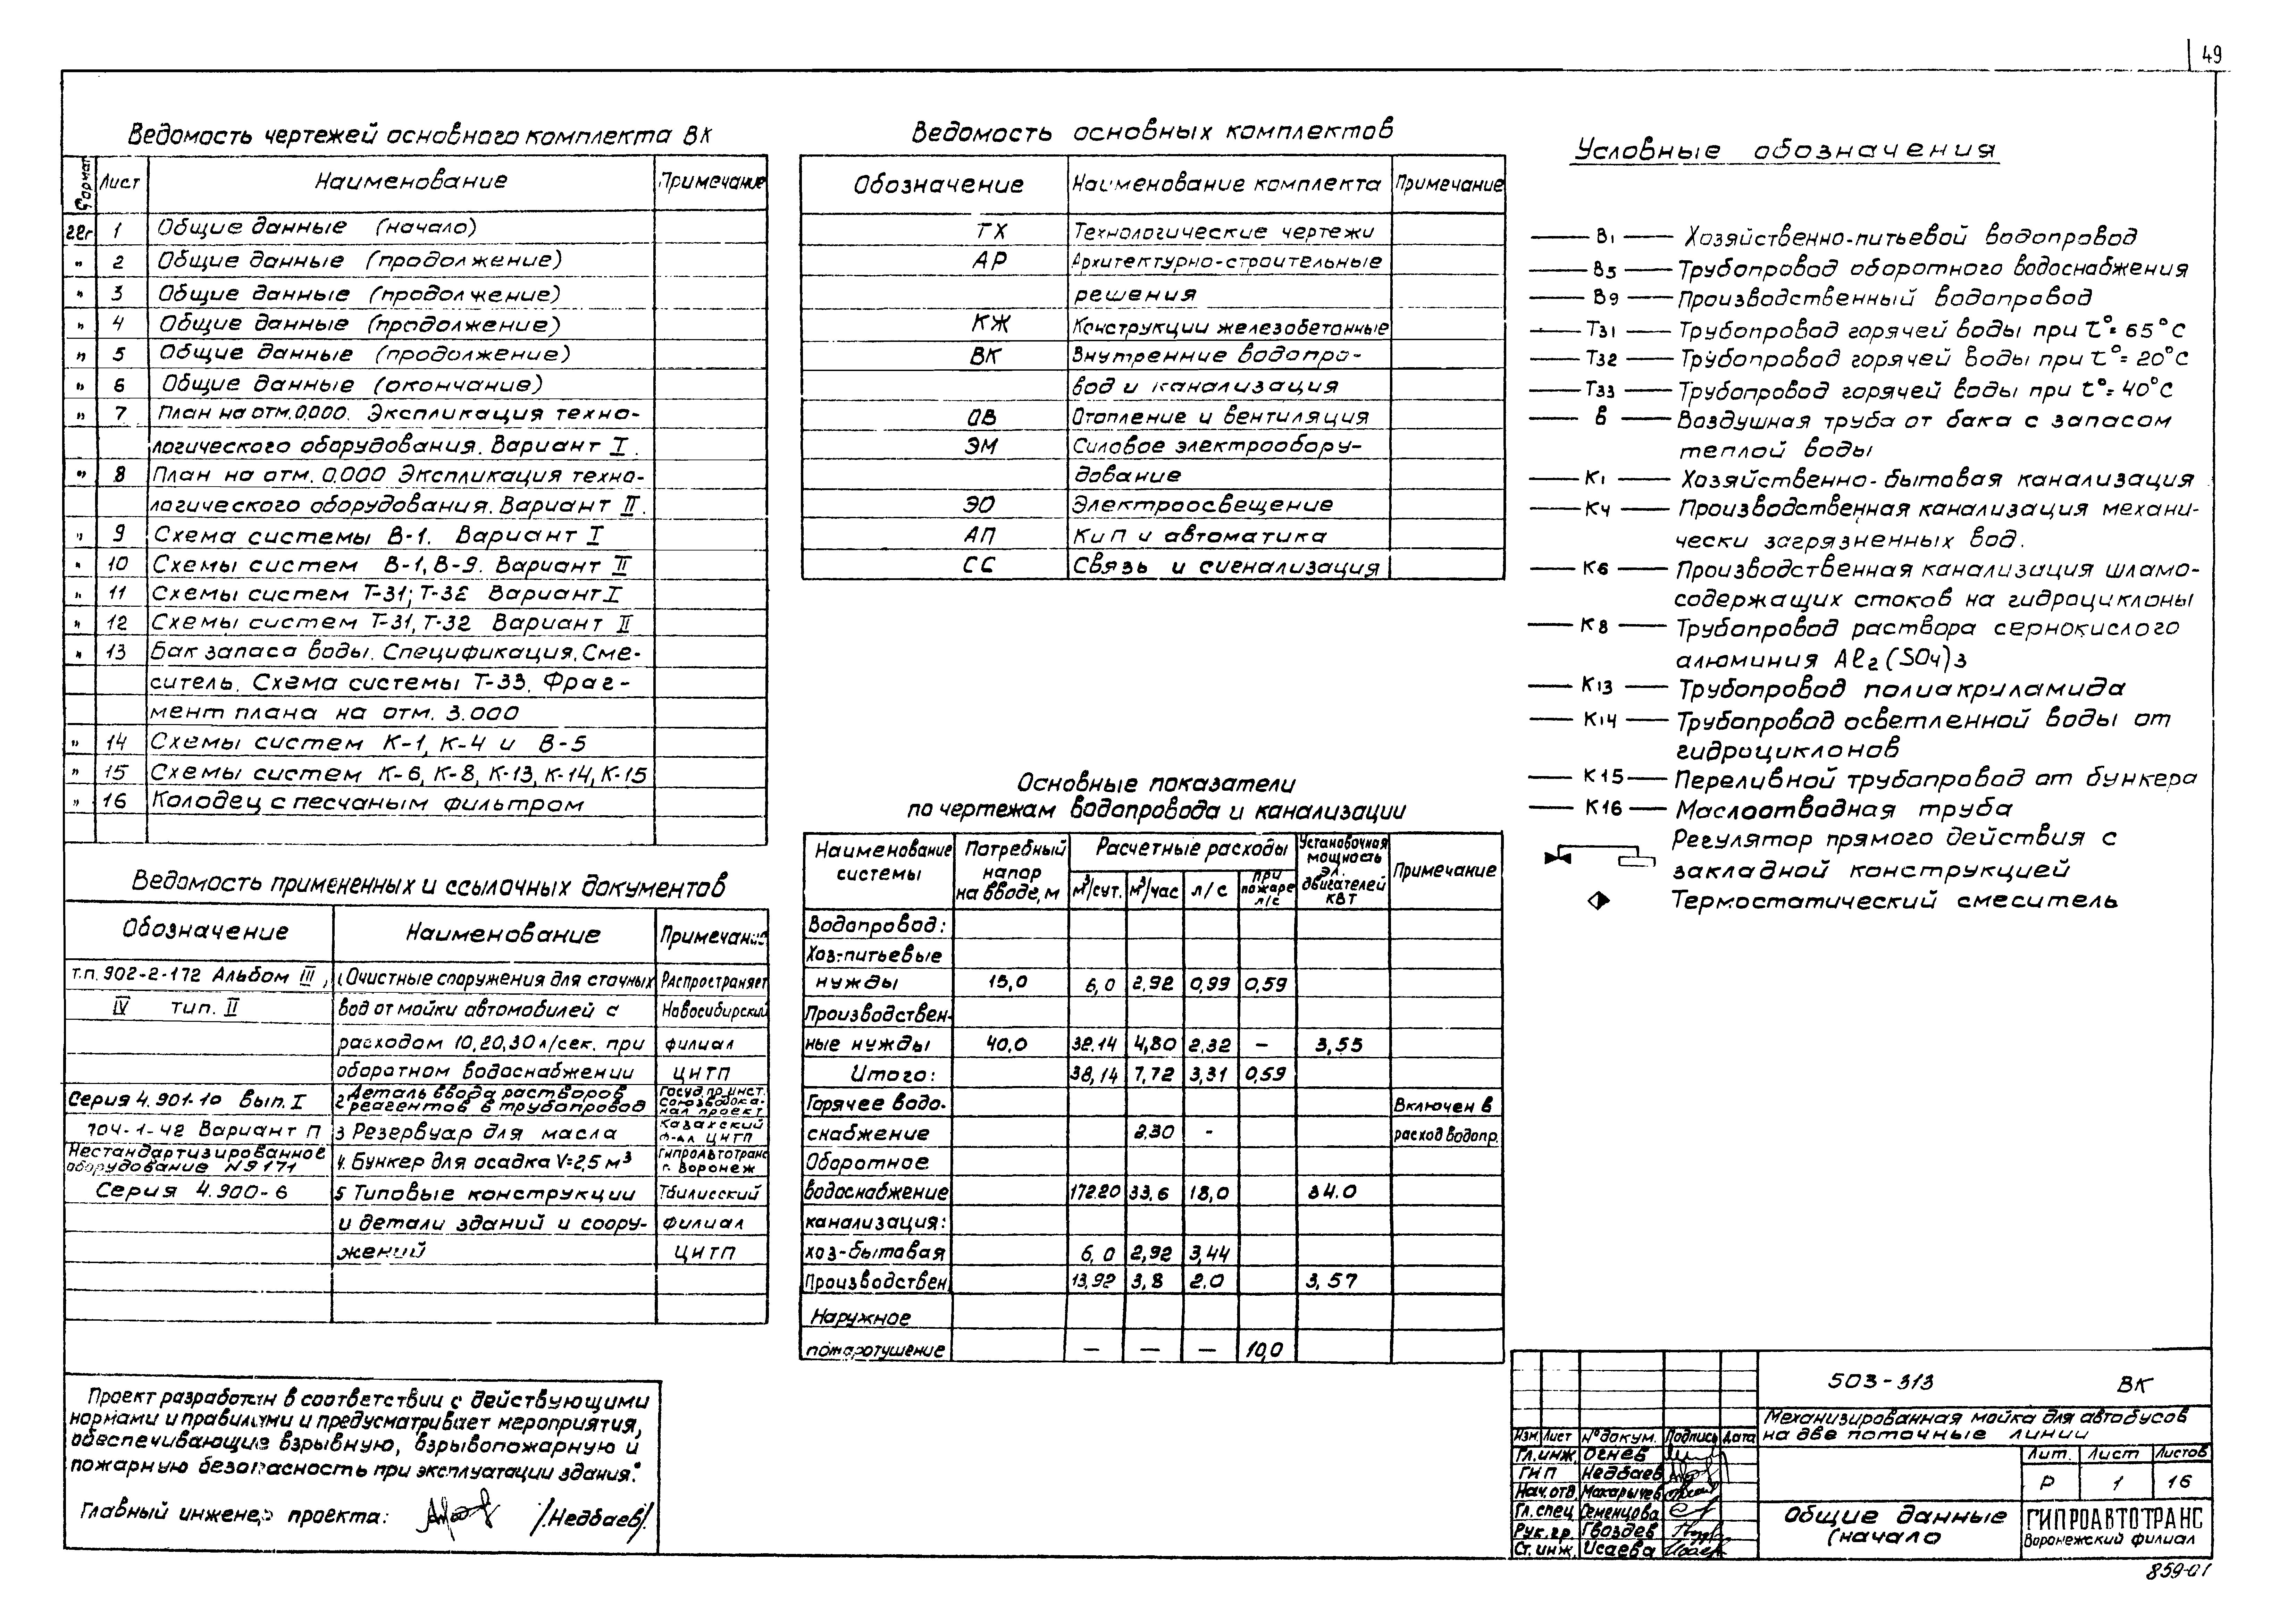 49
Ведомость чертежей основного комплекта ВК
Формат Лист Наименование Примечание
22г 1 Общие данные (начало)
" 2 Общие данные (продолжение)
" 3 Общие данные (продолжение)
" 4 Общие данные (продолжение)
" 5 Общие данные (продолжение)
" 6 Общие данные (окончание)
" 7 План на отм.0.000. Экспликация техно-
логического оборудования. Вариант I.
" 8 План на отм. 0.000 Экспликация техно-
логического оборудования. Вариант II.
" 9 Схема системы В-1. Вариант I
" 10 Схемы систем В-1, В-9. Вариант II
" 11 Схемы систем Т-31; Т-32 Вариант I
" 12 Схемы систем Т-31, Т-32 Вариант II
" 13 Бак запаса воды. Спецификация. Сме-
ситель. Схема системы Т-33. Фраг-
мент плана на отм. 3.000
" 14 Схемы систем К-1, К-4 и В-5
" 15 Схемы систем К-6, К-8, К-13, К-14, К-15
" 16 Колодец с песчаным фильтром
Ведомость примененных и ссылочных документов
Обозначение Наименование Примечание
т.п. 902-2-172 Альбом III, 1 Очистные сооружения для сточных Распространяет
IV тип. II вод от мойки автомобилей с Новосибирский
расходом 10,20,30 л/сек. при филиал
оборотном водоснабжении ЦИТП
Серия 4.901-10 Вып. I 2 Деталь ввода растворов реагентов в трубопровод Госуд.пр.инст. Союзводока-нал проект
704-1-42 Вариант П 3 Резервуар для масла Казахский ф-ал ЦИТП
Нестандартизированное оборудование N9171 4. Бункер для осадка V=2,5 м³ Гипроавтотранс г. Воронеж
Серия 4.900-6 5 Типовые конструкции Тбилисский
и детали зданий и соору- филиал
жений ЦИТП
Проект разработан в соответствии с действующими
нормами и правилами и предусматривает мероприятия,
обеспечивающие взрывную, взрывопожарную и
пожарную безопасность при эксплуатации здания."
Главный инженер проекта: /.Недбаев/.
Ведомость основных комплектов
Обозначение Наименование комплекта Примечание
ТХ Технологические чертежи
АР Архитектурно-строительные
решения
КЖ Конструкции железобетонные
ВК Внутренние водопро-
вод и канализация
ОВ Отопление и вентиляция
ЭМ Силовое электрообору-
дование
ЭО Электроосвещение
АП КиП и автоматика
СС Связь и сигнализация
Основные показатели
по чертежам водопровода и канализации
Наименование системы Потребный напор на вводе, м Расчетные расходы Установочная мощность эл. двигателей кВт Примечание
м³/сут. м³/час л/с при пожаре л/с
Водопровод:
Хоз-питьевые
нужды 15,0 6,0 2,92 0,99 0,59
Производствен-
ные нужды 40,0 32.14 4,80 2.32 – 3,55
Итого: 38,14 7,72 3,31 0,59
Горячее водо- Включен в
снабжение 2.30 - расход водопр.
Оборотное
водоснабжение 172.20 33,6 18,0 34.0
канализация:
хоз-бытовая 6,0 2,92 3,44
Производствен. 13,92 3,8 2.0 3,57
Наружное
пожаротушение – – – 10,0
Условные обозначения
В1 Хозяйственно-питьевой водопровод
В5 Трубопровод оборотного водоснабжения
В9 Производственный водопровод
Т31 Трубопровод горячей воды при t°=65°С
Т32 Трубопровод горячей воды при t°=20°С
Т33 Трубопровод горячей воды при t°=40°С
В Воздушная труба от бака с запасом
теплой воды
К1 Хозяйственно-бытовая канализация
К4 Производственная канализация механи-
чески загрязненных вод.
К6 Производственная канализация шламо-
содержащих стоков на гидроциклоны
К8 Трубопровод раствора сернокислого
алюминия Al2(SO4)3
К13 Трубопровод полиакриламида
К14 Трубопровод осветленной воды от
гидроциклонов
К15 Переливной трубопровод от бункера
К16 Маслоотводная труба
Регулятор прямого действия с
закладной конструкцией
Термостатический смеситель
503-313 ВК
Механизированная мойка для автобусов
на две поточные линии
Изм. Лист № докум. Подпись Дата
Гл.инж. Огнев
ГИП Недбаев
Нач.отд. Макарычев
Гл.спец. Семенцова
Рук.гр. Гвоздев
Ст.инж. Исаева
Лит. Лист Листов
Р 1 16
Общие данные
(начало
ГИПРОАВТОТРАНС
Воронежский филиал
859-01